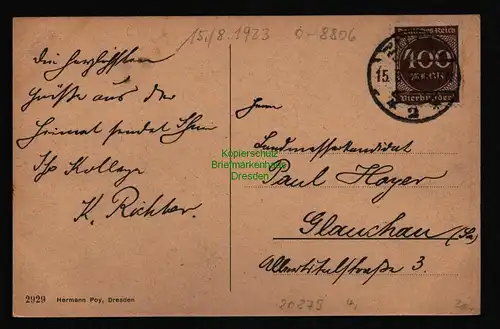 15./8. 1923
Deutsches Reich
400
Mark
15.
2
die herzlichsten
Grüße aus der
Heimat sendet Ihnen
Ihr Kollege
K. Richter.
Herrn
Kopierschutz
Briefmarkenhaus
Dresden
Landmesserkandidat
Paul Hoyer
Glauchau (Sa)
Albertsthalstraße 3.
2929 Hermann Poy, Dresden